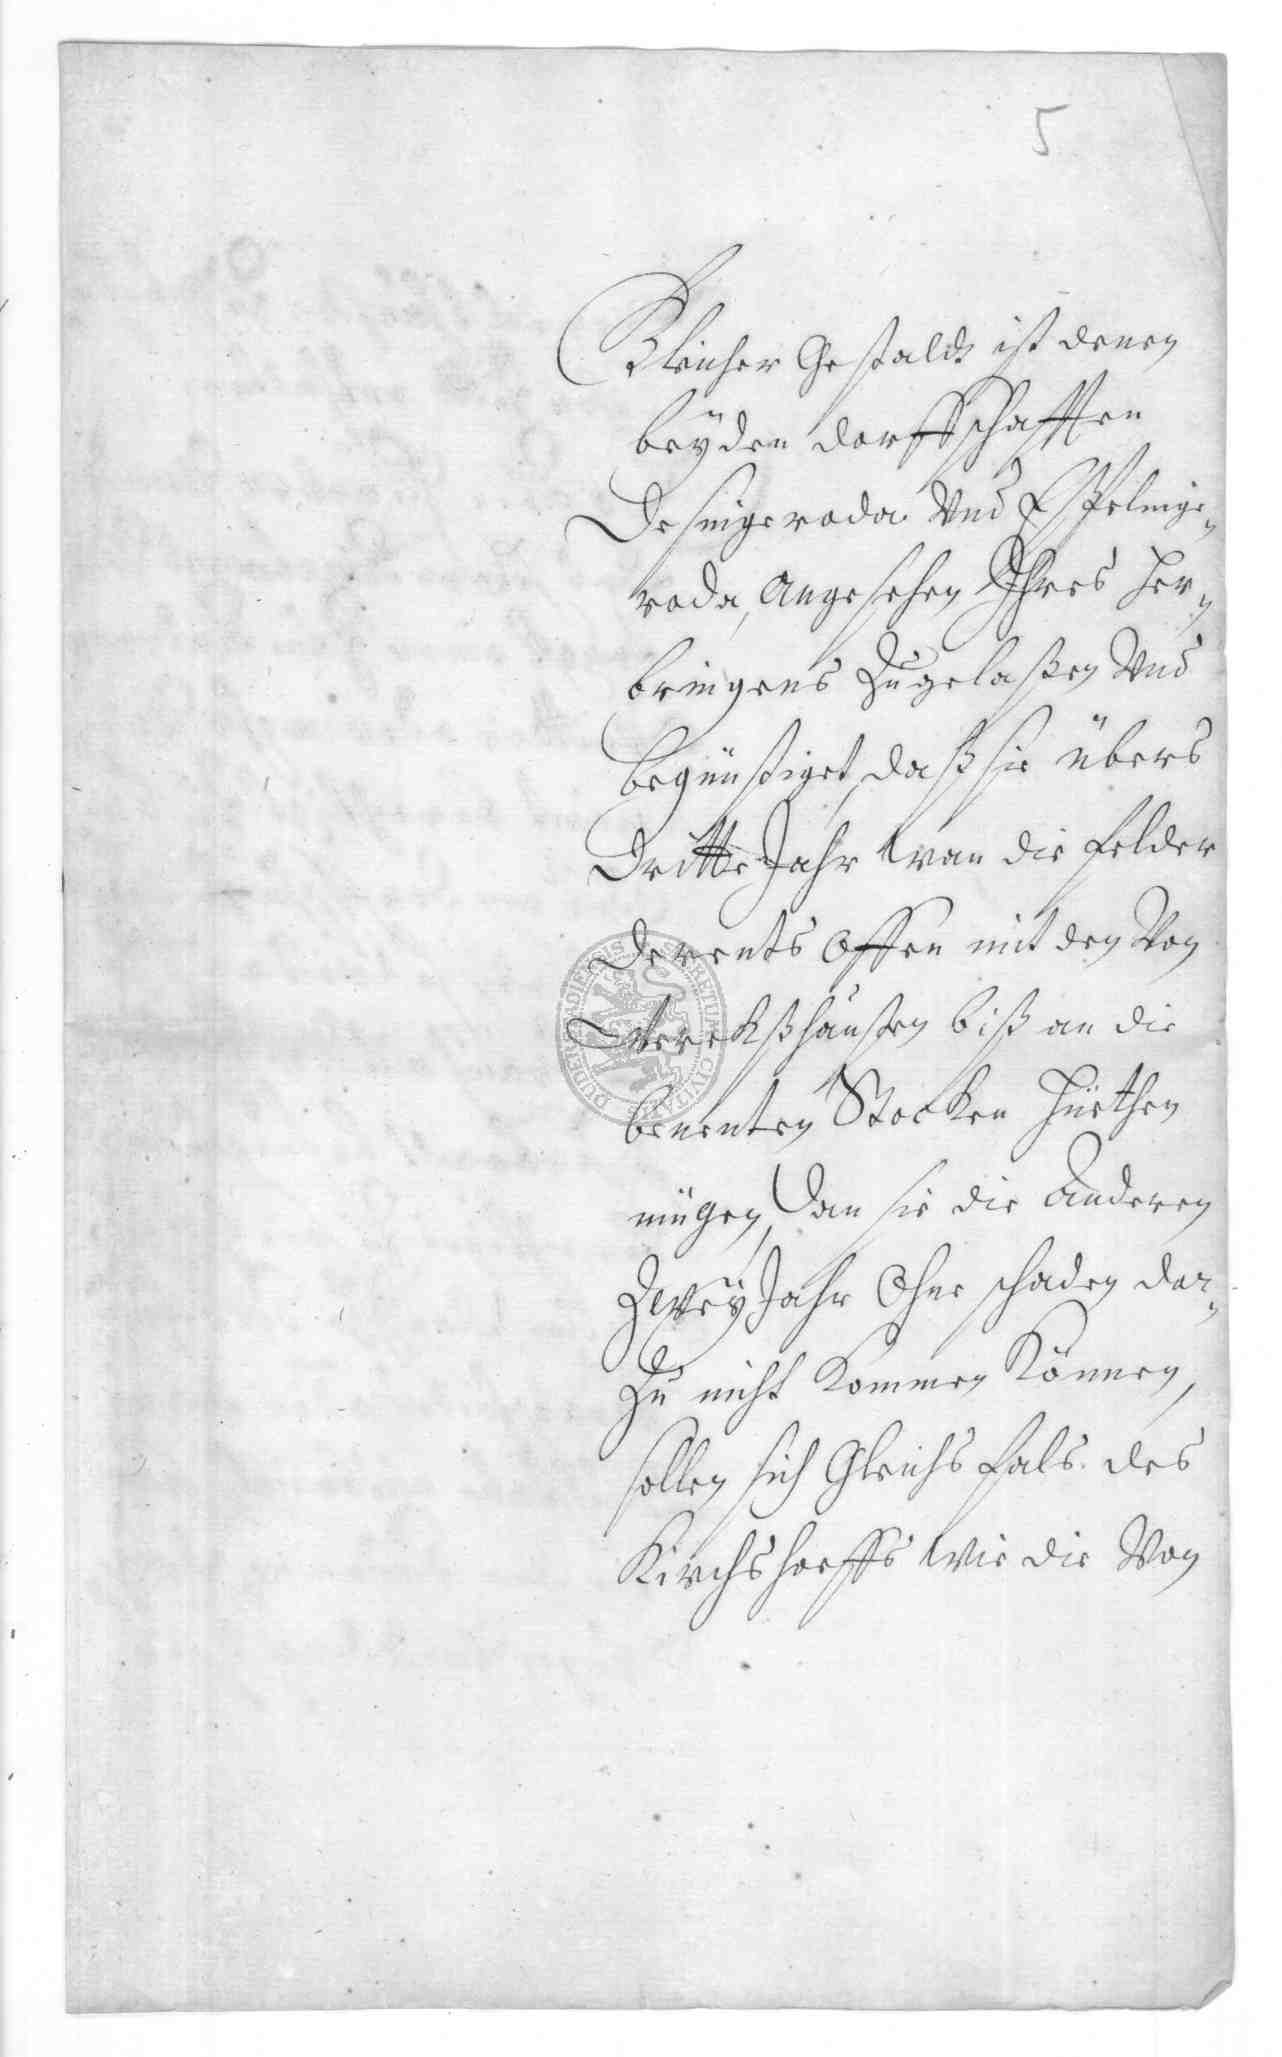 5
Gleicher Gestaldt ist denen
beÿden dorffschafften
Desingeroda Vnd Esplinge„
roda, Angesehen Ihres her„
bringens Zugelaßen Vnd
begünstiget, daß sie übers
Dritte Jahr wan die felder
derents offen mit den Von
Werckßhaußen biß an die
benenten Stocken hüethen
mügen, dan sie die Anderen
Zweÿ Jahr Ohne schaden dar„
Zu nicht Kommen Können,
sollen sich Gleichsfals des
Kirchshoeffs wie die Von